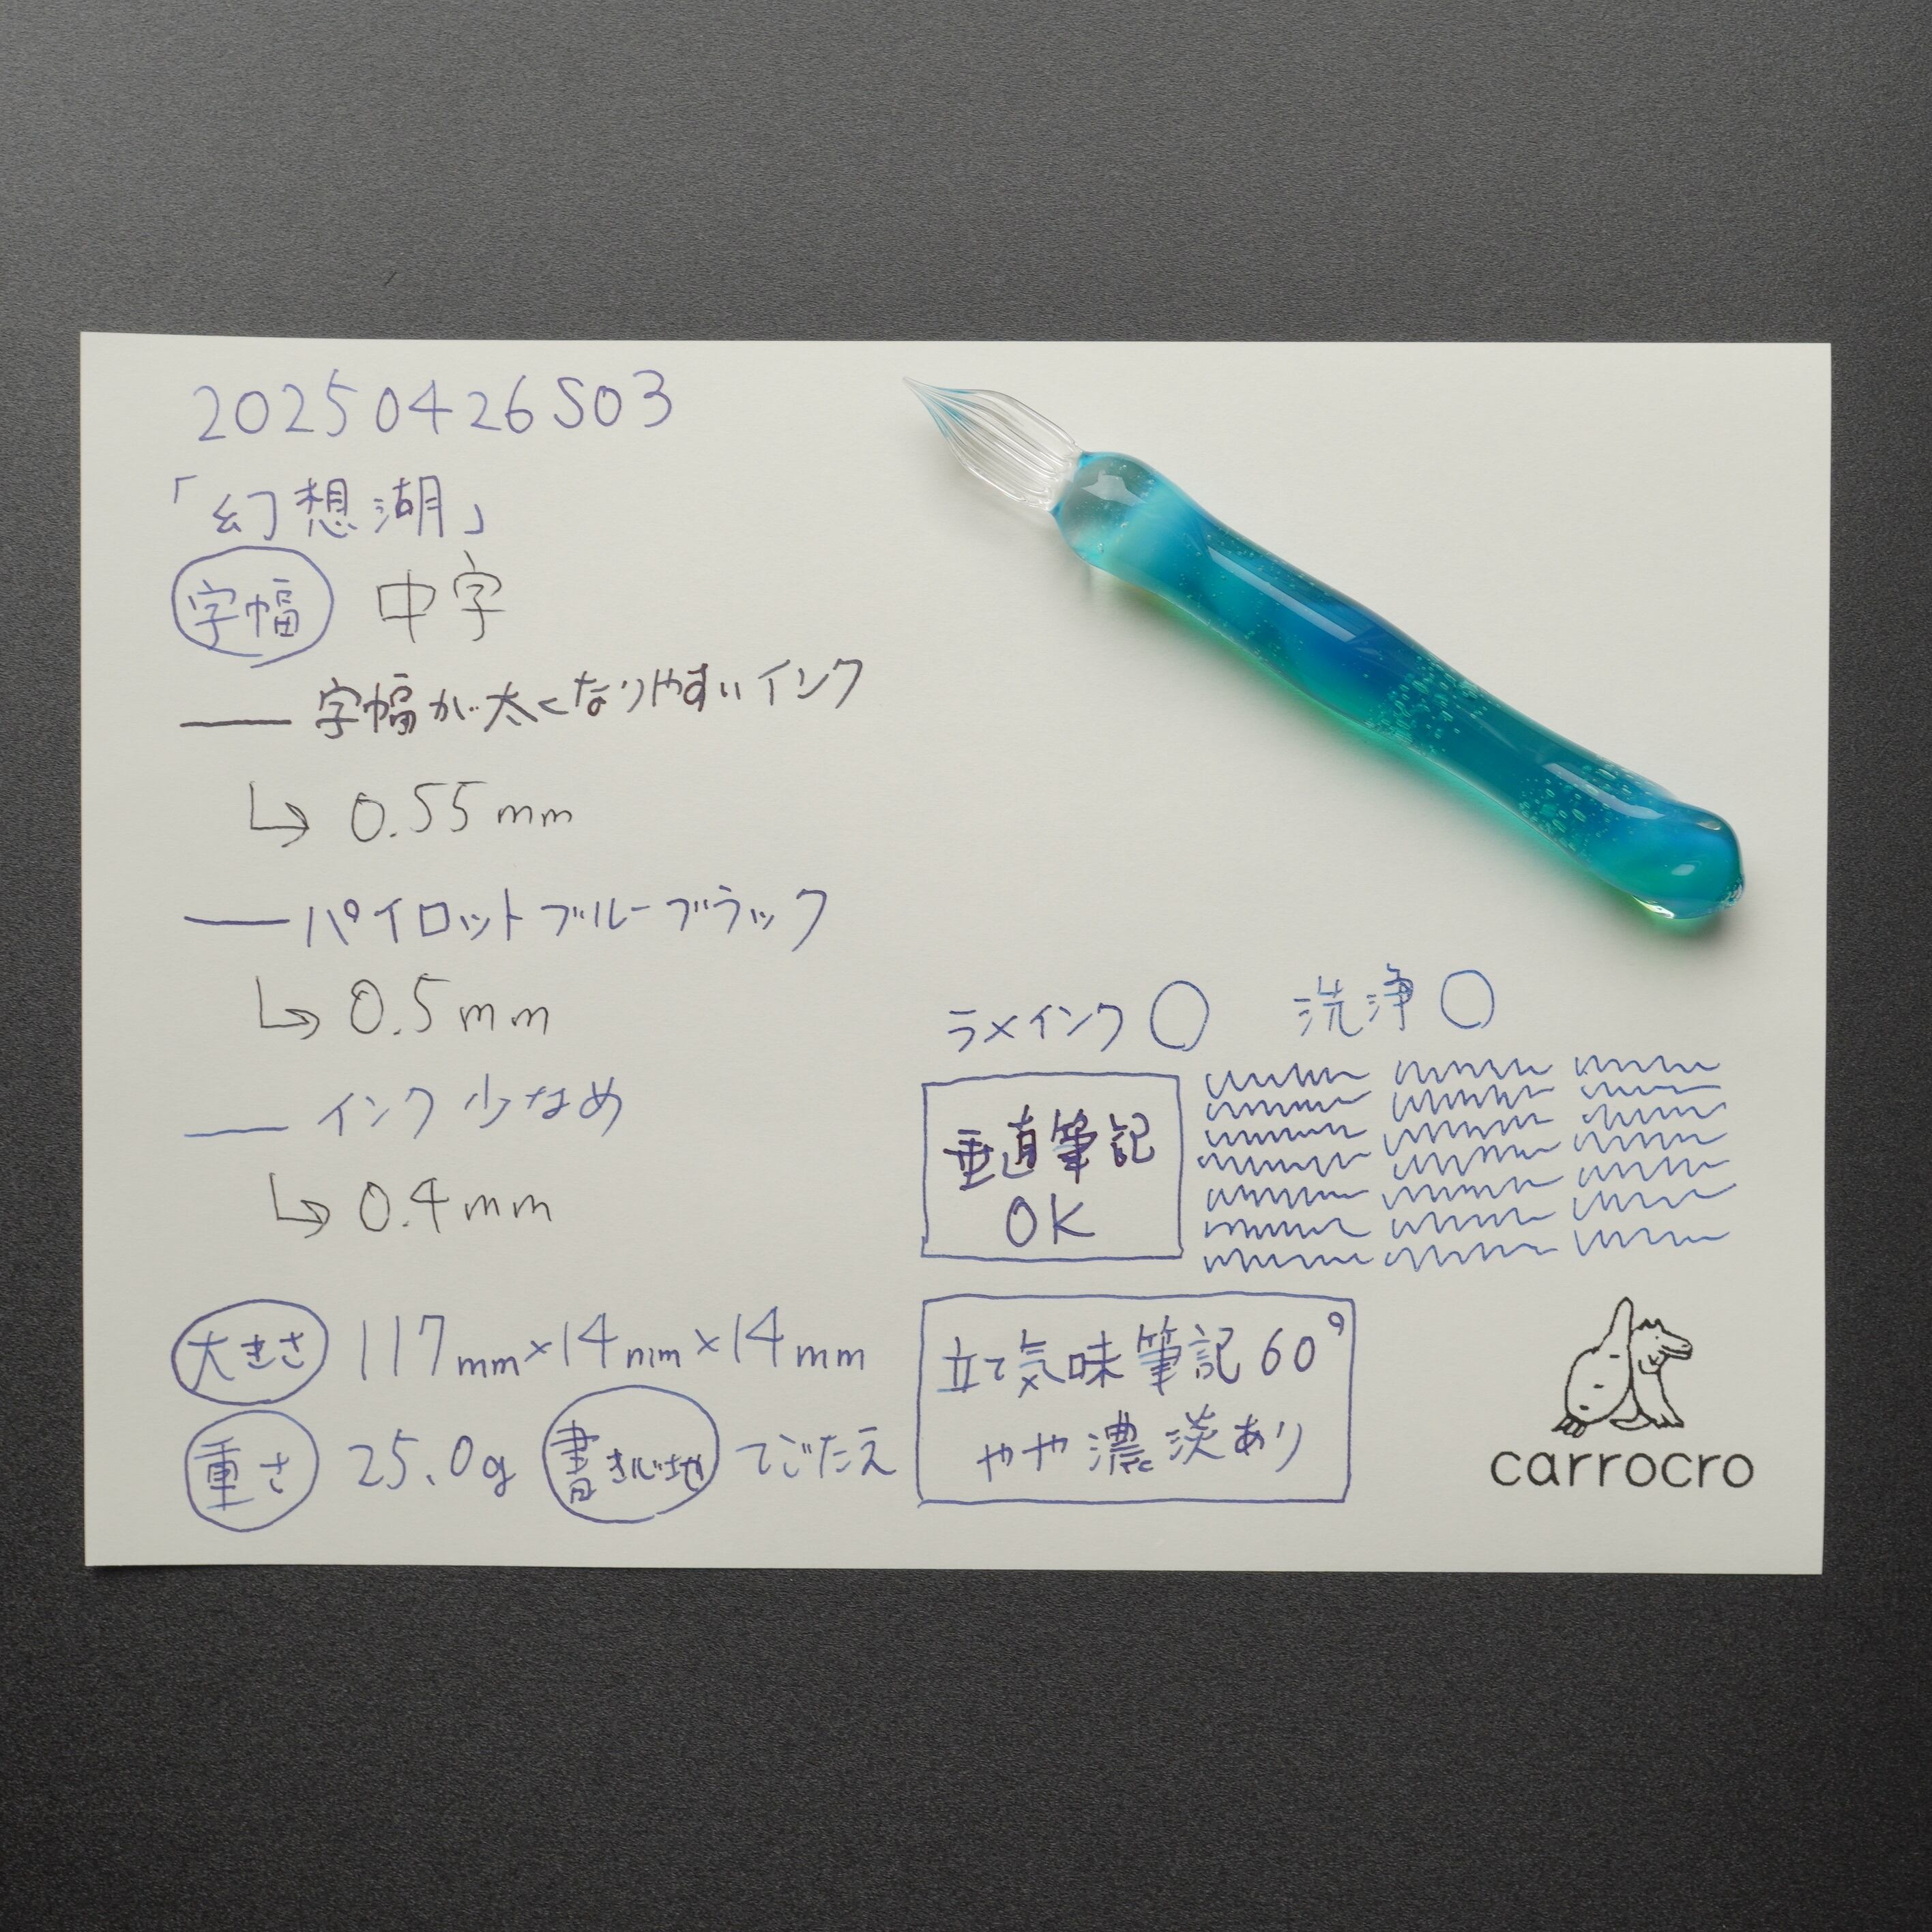 20250426S03
「幻想湖」
字幅 中字
字幅が太くなりやすいインク
0.55mm
パイロットブルーブラック
0.5mm
インク少なめ
0.4mm
大きさ 117mm×14mm×14mm
重さ 25.0g 書き心地 てごたえ
ラメインク○ 洗浄○
垂直筆記
OK
立て気味筆記60°
やや濃淡あり
carrocro